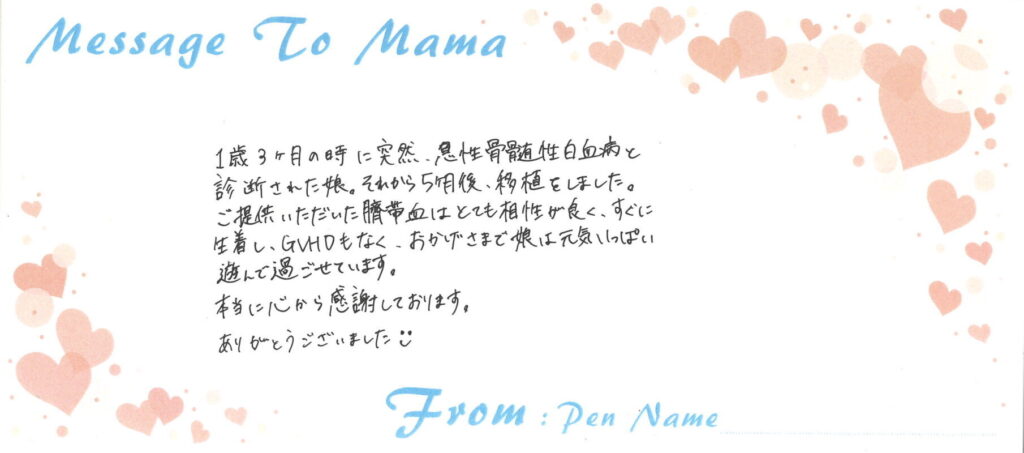 Message To Mama
1歳3ヶ月の時に突然、急性骨髄性白血病と
診断された娘。それから5ヶ月後、移植をしました。
ご提供いただいた臍帯血はとても相性が良く、すぐに
生着し、GVHDもなく、おかげさまで娘は元気いっぱい
遊んで過ごせています。
本当に心から感謝しております。
ありがとうございました
From : Pen Name